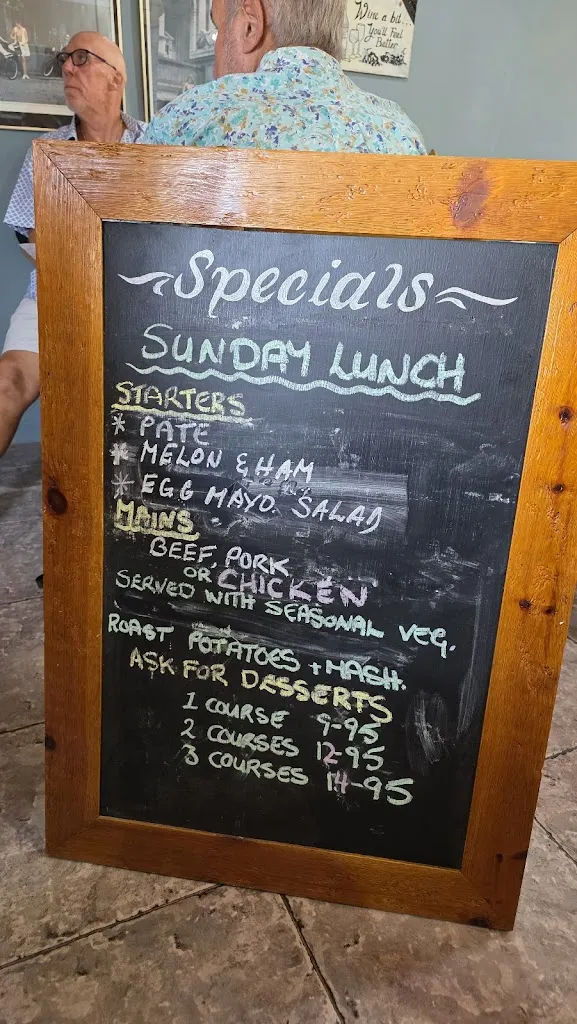 Wine a bit..
You'll Feel
Better
Specials
SUNDAY LUNCH
STARTERS
* PATE
* MELON & HAM
* EGG MAYO. SALAD
MAINS
BEEF, PORK
OR CHICKEN
SERVED WITH SEASONAL VEG.
ROAST POTATOES + MASH.
ASK FOR DESSERTS
1 COURSE 9-95
2 COURSES 12-95
3 COURSES 14-95